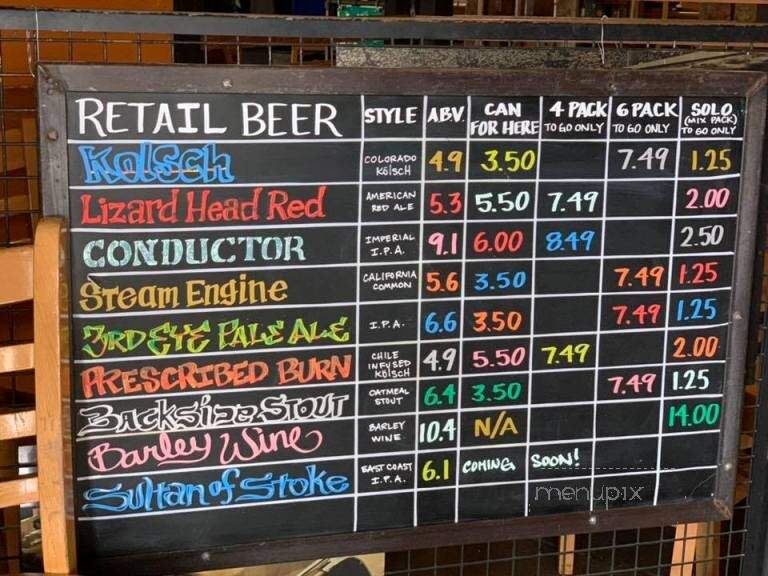 RETAIL BEER STYLE ABV. CAN FOR HERE 4 PACK TO GO ONLY 6 PACK TO GO ONLY SOLO (MIX PACK) TO GO ONLY
Kölsch COLORADO KÖLSCH 4.9 3.50 7.49 1.25
Lizard Head Red AMERICAN RED ALE 5.3 5.50 7.49 2.00
CONDUCTOR IMPERIAL I.P.A. 9.1 6.00 8.49 2.50
Steam Engine CALIFORNIA COMMON 5.6 3.50 7.49 1.25
3RD EYE PALE ALE I.P.A. 6.6 3.50 7.49 1.25
PRESCRIBED BURN CHILE INFUSED KÖLSCH 4.9 5.50 7.49 2.00
Backside Stout OATMEAL STOUT 6.4 3.50 7.49 1.25
Barley Wine BARLEY WINE 10.4 N/A 14.00
Sultan of Stoke EAST COAST I.P.A. 6.1 COMING SOON!
menupix